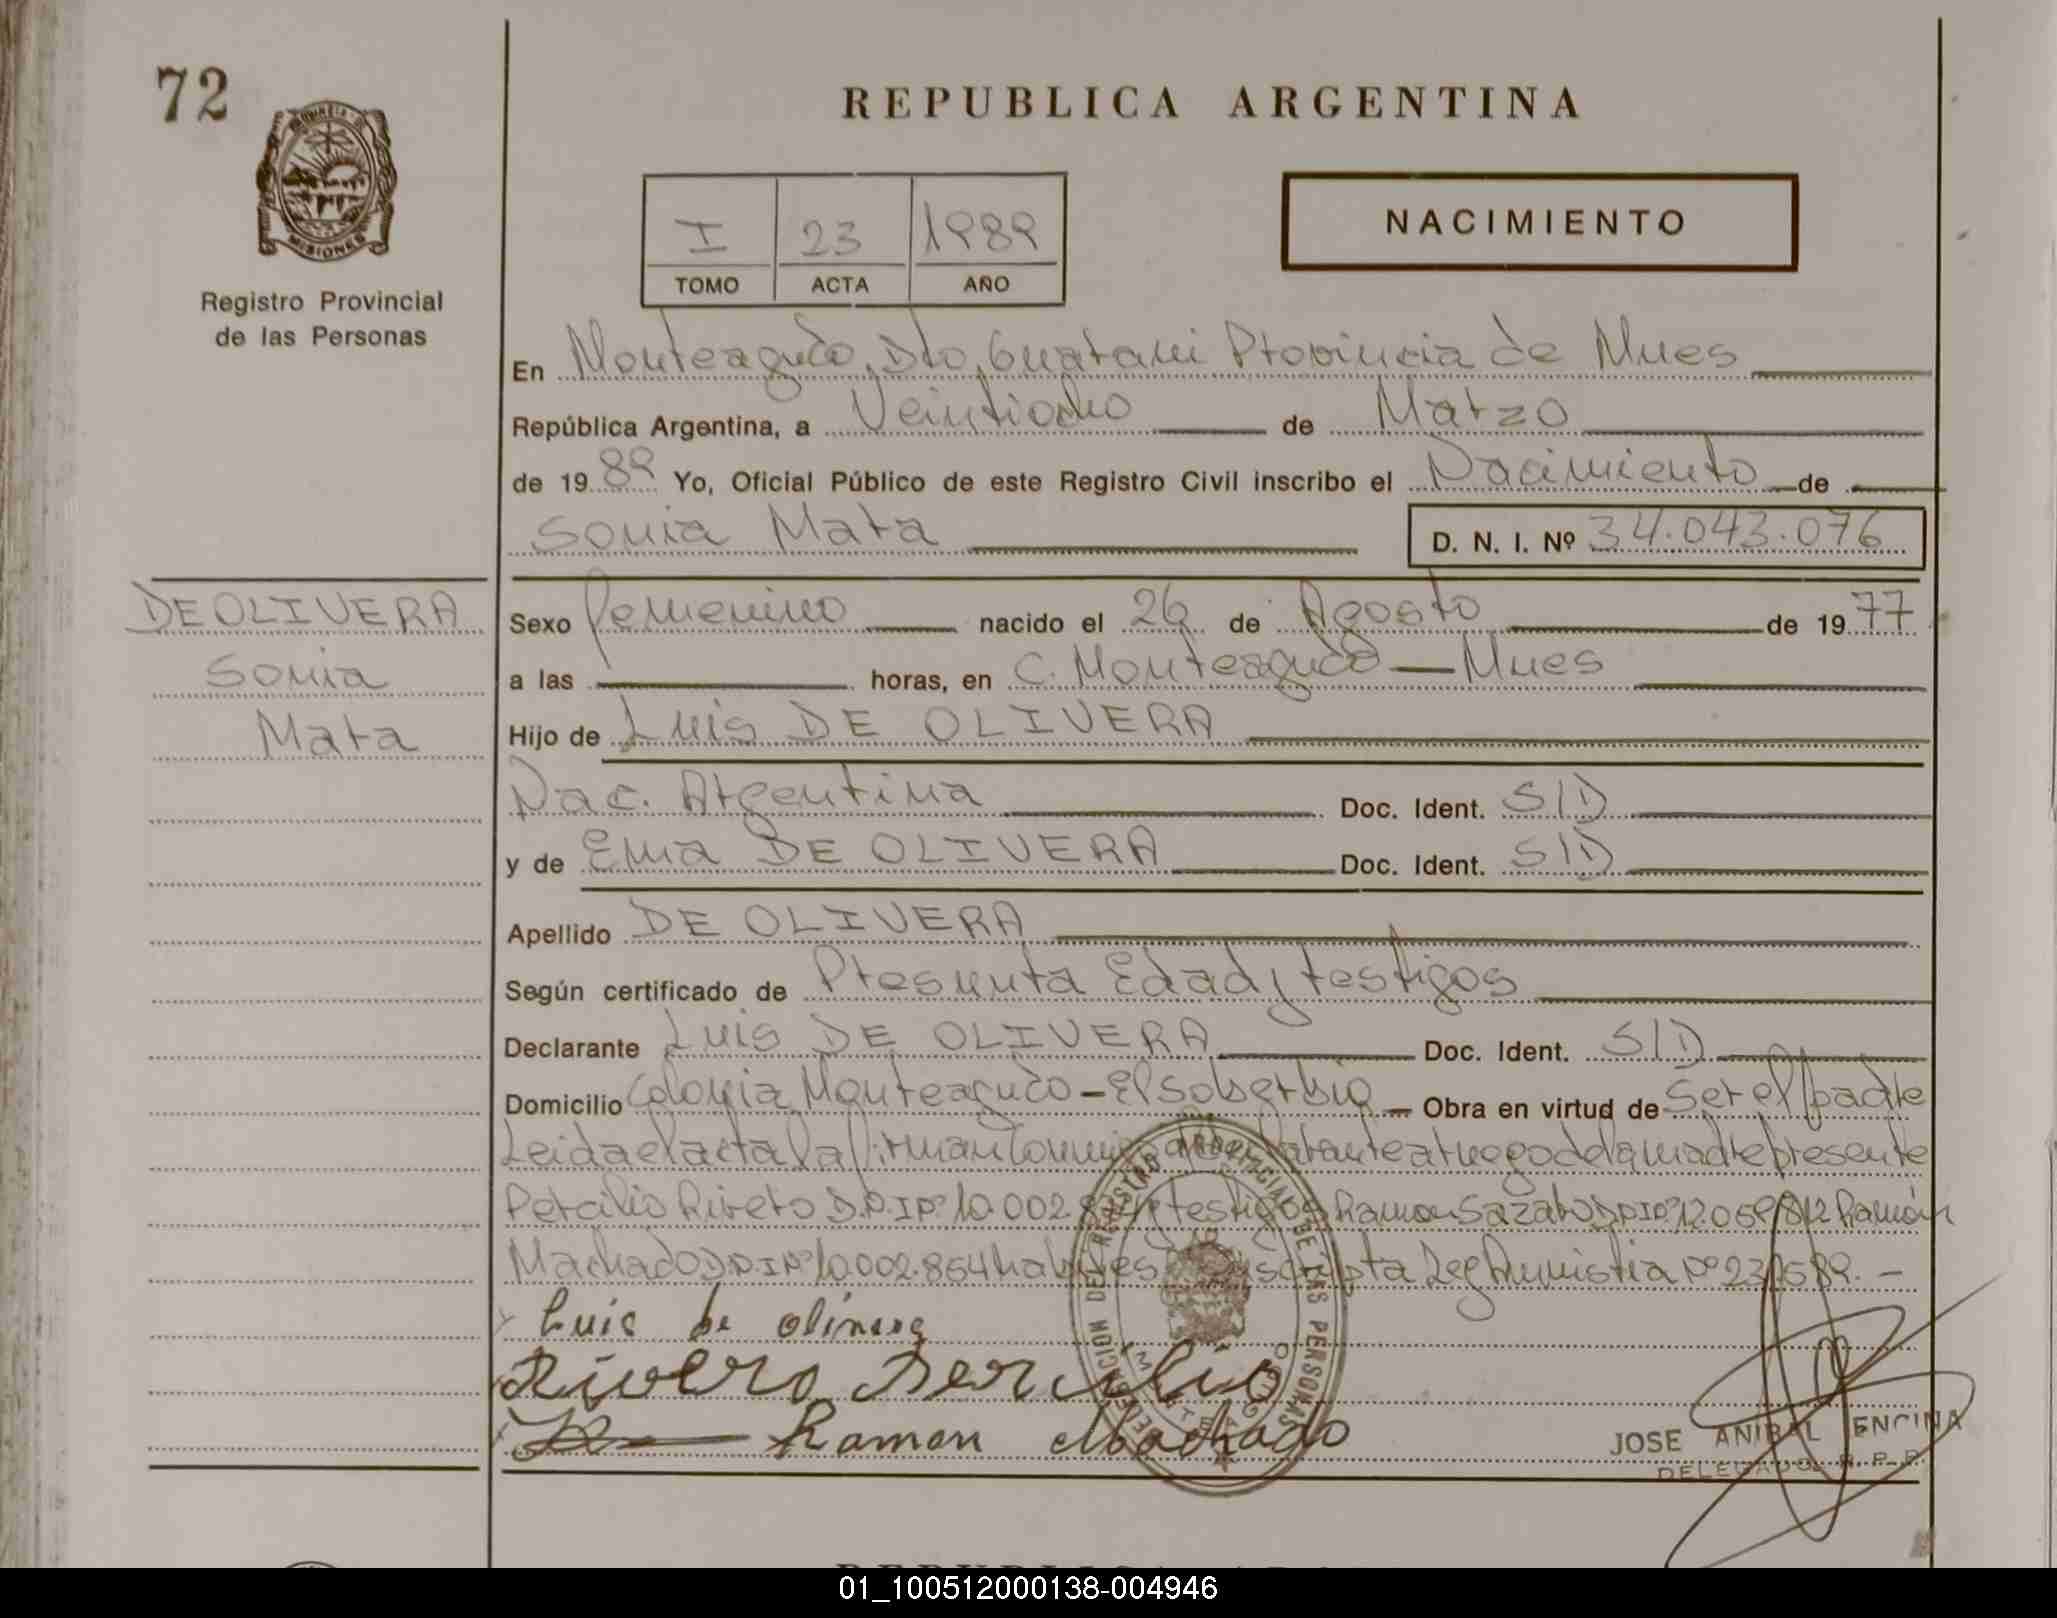 72
REPUBLICA ARGENTINA
PROVINCIA DE
MISIONES
Registro Provincial
de las Personas
I 23 1989
TOMO ACTA AÑO
NACIMIENTO
En Monteagudo, Dto, Guarani Provincia de Mnes
República Argentina, a Veintiocho de Marzo
de 19 89 Yo, Oficial Público de este Registro Civil inscribo el Nacimiento de
Sonia Mara D. N. I. Nº 34.043.076
DE OLIVERA
Sonia
Mara
Sexo femenino nacido el 26 de Agosto de 19 77
a las horas, en C. Monteagudo — Mnes
Hijo de Luis DE OLIVERA
Nac. Argentina Doc. Ident. S/D
y de Ema DE OLIVERA Doc. Ident. S/D
Apellido DE OLIVERA
Según certificado de Presunta Edad y testigos
Declarante Luis DE OLIVERA Doc. Ident. S/D
Domicilio Colonia Monteagudo - El Soberbio - Obra en virtud de Ser el padre
Leida el acta la firman conmigo el declarante a ruego de la madre presente
Percilio Rivero D.N.I Nº 10.002. y testigos Ramon D.N.I Nº 12.059.812 Ramón
Machado D.N.I Nº 10.002.854 habiles inscripta Ley Amnistia Nº -
Luis de olivera
Rivero Percilio
Ramon Machado
DELEGACION DEL REGISTRO PROVINCIAL DE LAS PERSONAS
MONTEAGUDO
JOSE ANIBAL ENCINA
DELEGADO R.P.P.
01_100512000138-004946